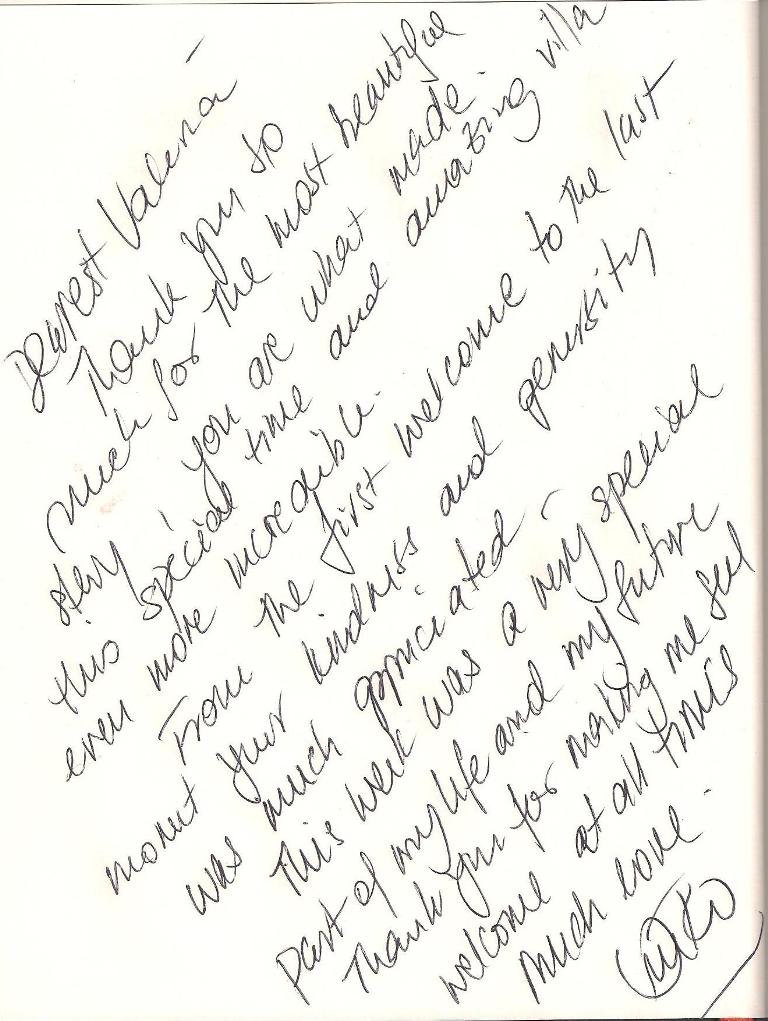 Dearest Valeria
Thank you so
much for the most beautiful
stay, you are what made
this special time and amazing villa
even more incredible.
From the first welcome to the last
momet your kindness and generosity
was much appriciated -
This week was a very special
part of my life and my future
Thank you for making me feel
welcome at all times
Much love.